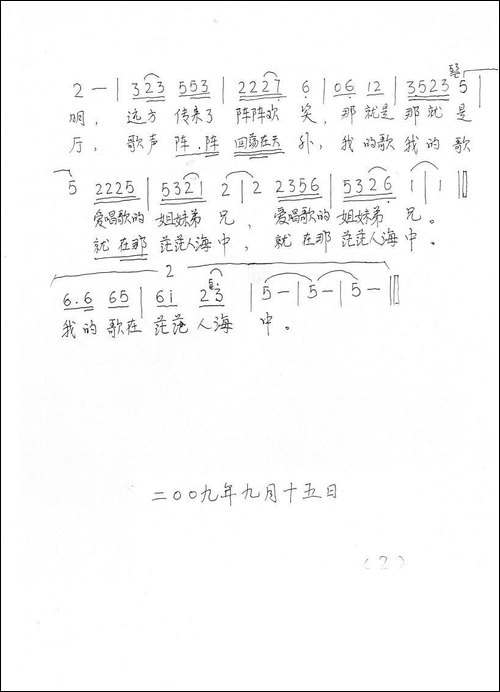 2 — | 323 553 | 2227 6 | 06 12 | 3523 5 |
明, 远方 传来了 阵阵欢 笑, 那 就是 那 就 是
厅, 歌声 阵.阵 回荡在大 外, 我 的歌 我 的 歌
5 2225 | 5321 2 | 2 2356 | 5326 1 | 1 ‖
爱唱歌的 姐妹弟 兄, 爱唱歌的 姐妹弟 兄。
就 在那 茫茫人海 中, 就 在那 茫茫人海 中。
2
6.6 65 | 6i 23 | 5 — | 5 — | 5 — ‖
我 的 歌在 茫茫 人海 中。
二〇〇九年九月十五日
(2)